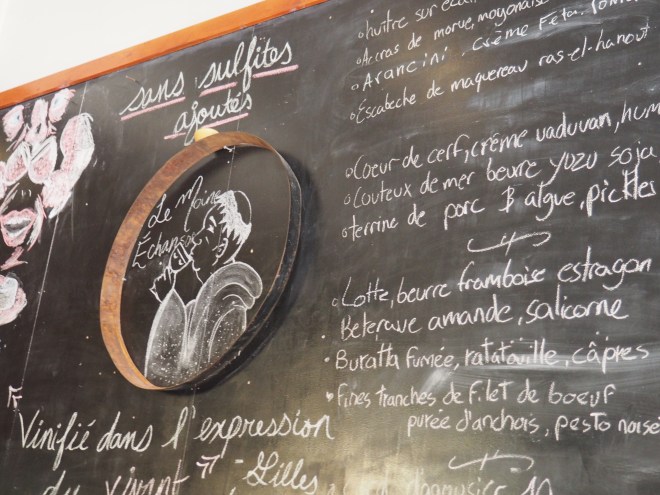 sans sulfites
ajoutés
Le Moine
Échanson
Vinifié dans l'expression
du vivant - Gilles
huître sur
Accras de morue, mayonaise
Arancini, crème Feta,
Escabeche de maquereau ras-el-hanout
Coeur de cerf, crème vaduvan,
Couteux de mer beurre yuzu soja
terrine de porc & algue, pickles
Lotte, beurre framboise estragon
Beterave amande, salicorne
Buratta fumée, ratatouille, câpres
Fines tranches de filet de boeuf
purée d'anchois, pesto noiset